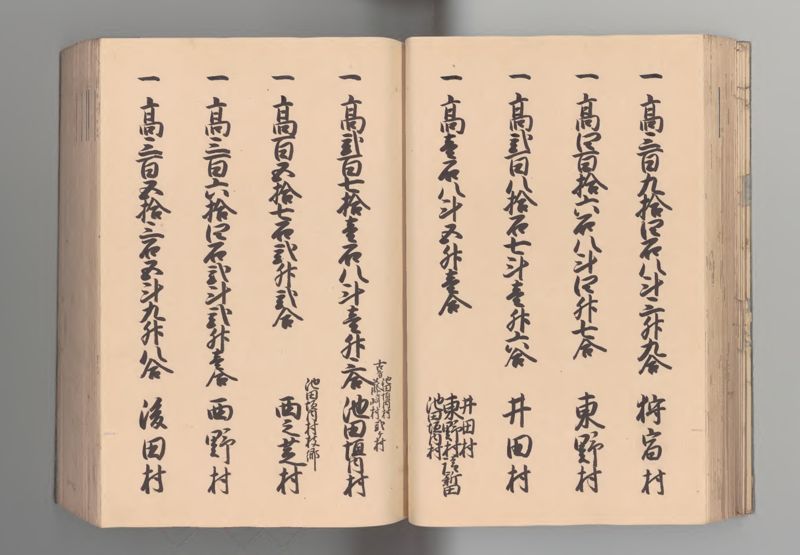 一高三百九拾四石八斗三升九合 狩宿村
一高四百拾六石八斗四升七合 東野村
一高弐百八拾石七斗壱升六合 井田村
一高壱石八斗五升壱合
井田村
東野村 新田
池田垣内村
古者池田垣内村
弐ヶ村
一高弐百七拾壱石八斗壱升三合 池田垣内村
池田垣内村枝郷
一高百五拾七石弐升弐合 西之芝村
一高三百六拾四石弐斗弐升壱合 西野村
一高三百五拾三石五斗九升八合 後田村